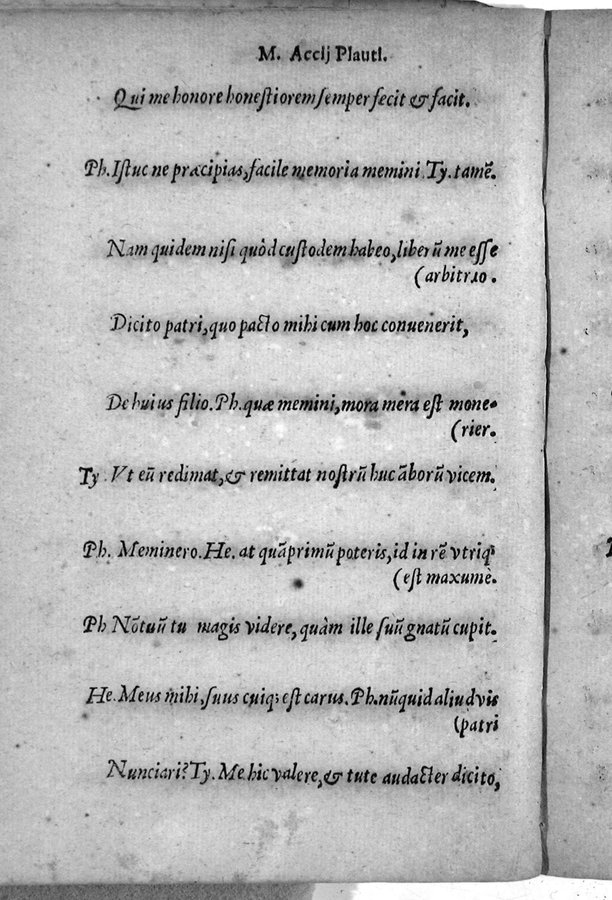 M. Accij Plauti.
Qui me honore honestiorem semper fecit & facit.
Ph. Istuc ne præcipias, facile memoria memini. Ty. tamē.
Nam quidem nisi quòd custodem habeo, liberū me esse
(arbitrıo.
Dicito patri, quo pacto mihi cum hoc conuenerit,
De huius filio. Ph. quæ memini, mora mera est mone-
(rier.
Ty. Vt eū redimat, & remittat nostrū huc āborū vicem.
Ph. Meminero. He. at quāprimū poteris, id in rē vtriq;
(est maxumè.
Ph Nō tuū tu magis videre, quàm ille suū gnatū cupit.
He. Meus mihi, suus cuiq; est carus. Ph. nūquid aliud vis
(patri
Nunciari? Ty. Me hic valere, & tute audacter dicito,